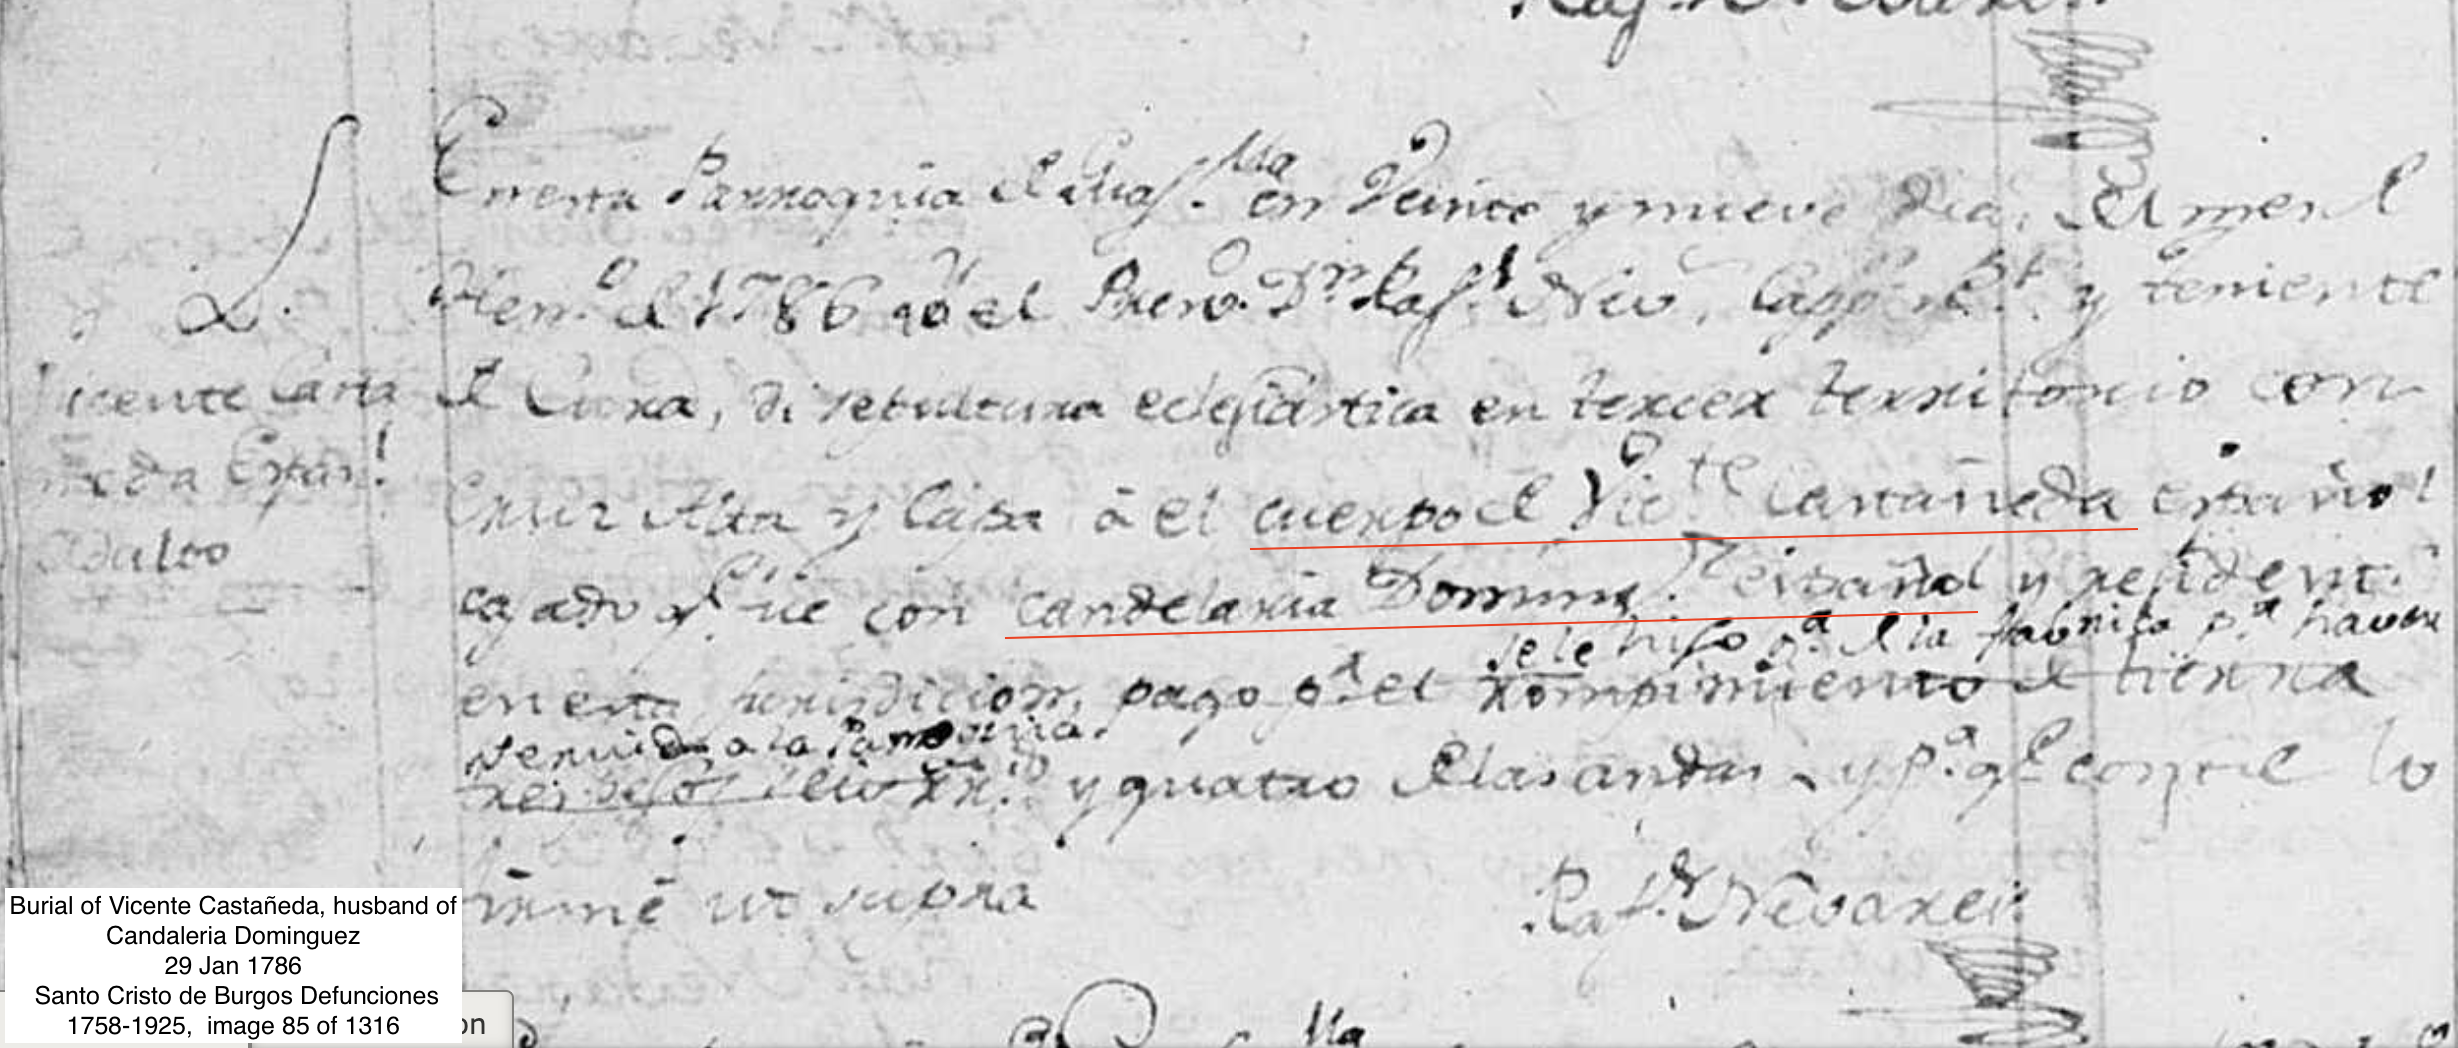 En esta Parroquia de Guaj.lla en Veinte y nueve dias, del mes de
de 1786 yo el Bach. Dn. Raf.l y teniente
de Cura, di sepultura eclesiastica en tercer territorio con
Cruz Alta y Capa â el cuerpo de Vic.te Castañeda español
casado q. fue con candelaria Doming.z español y resident.
se le hiso g.a de la fabrica p.r haver
en esta jurisdicion, pago p.r el rompimiento de tierra
servido a la Parroquia.
tres pesos y quatro de las andas y p.a q.e conste lo
firmé ut supra
Raf.l Nevarez
Vicente Casta
ñeda Españ.l
Adulto
Burial of Vicente Castañeda, husband of
Candaleria Dominguez
29 Jan 1786
Santo Cristo de Burgos Defunciones
1758-1925, image 85 of 1316
on